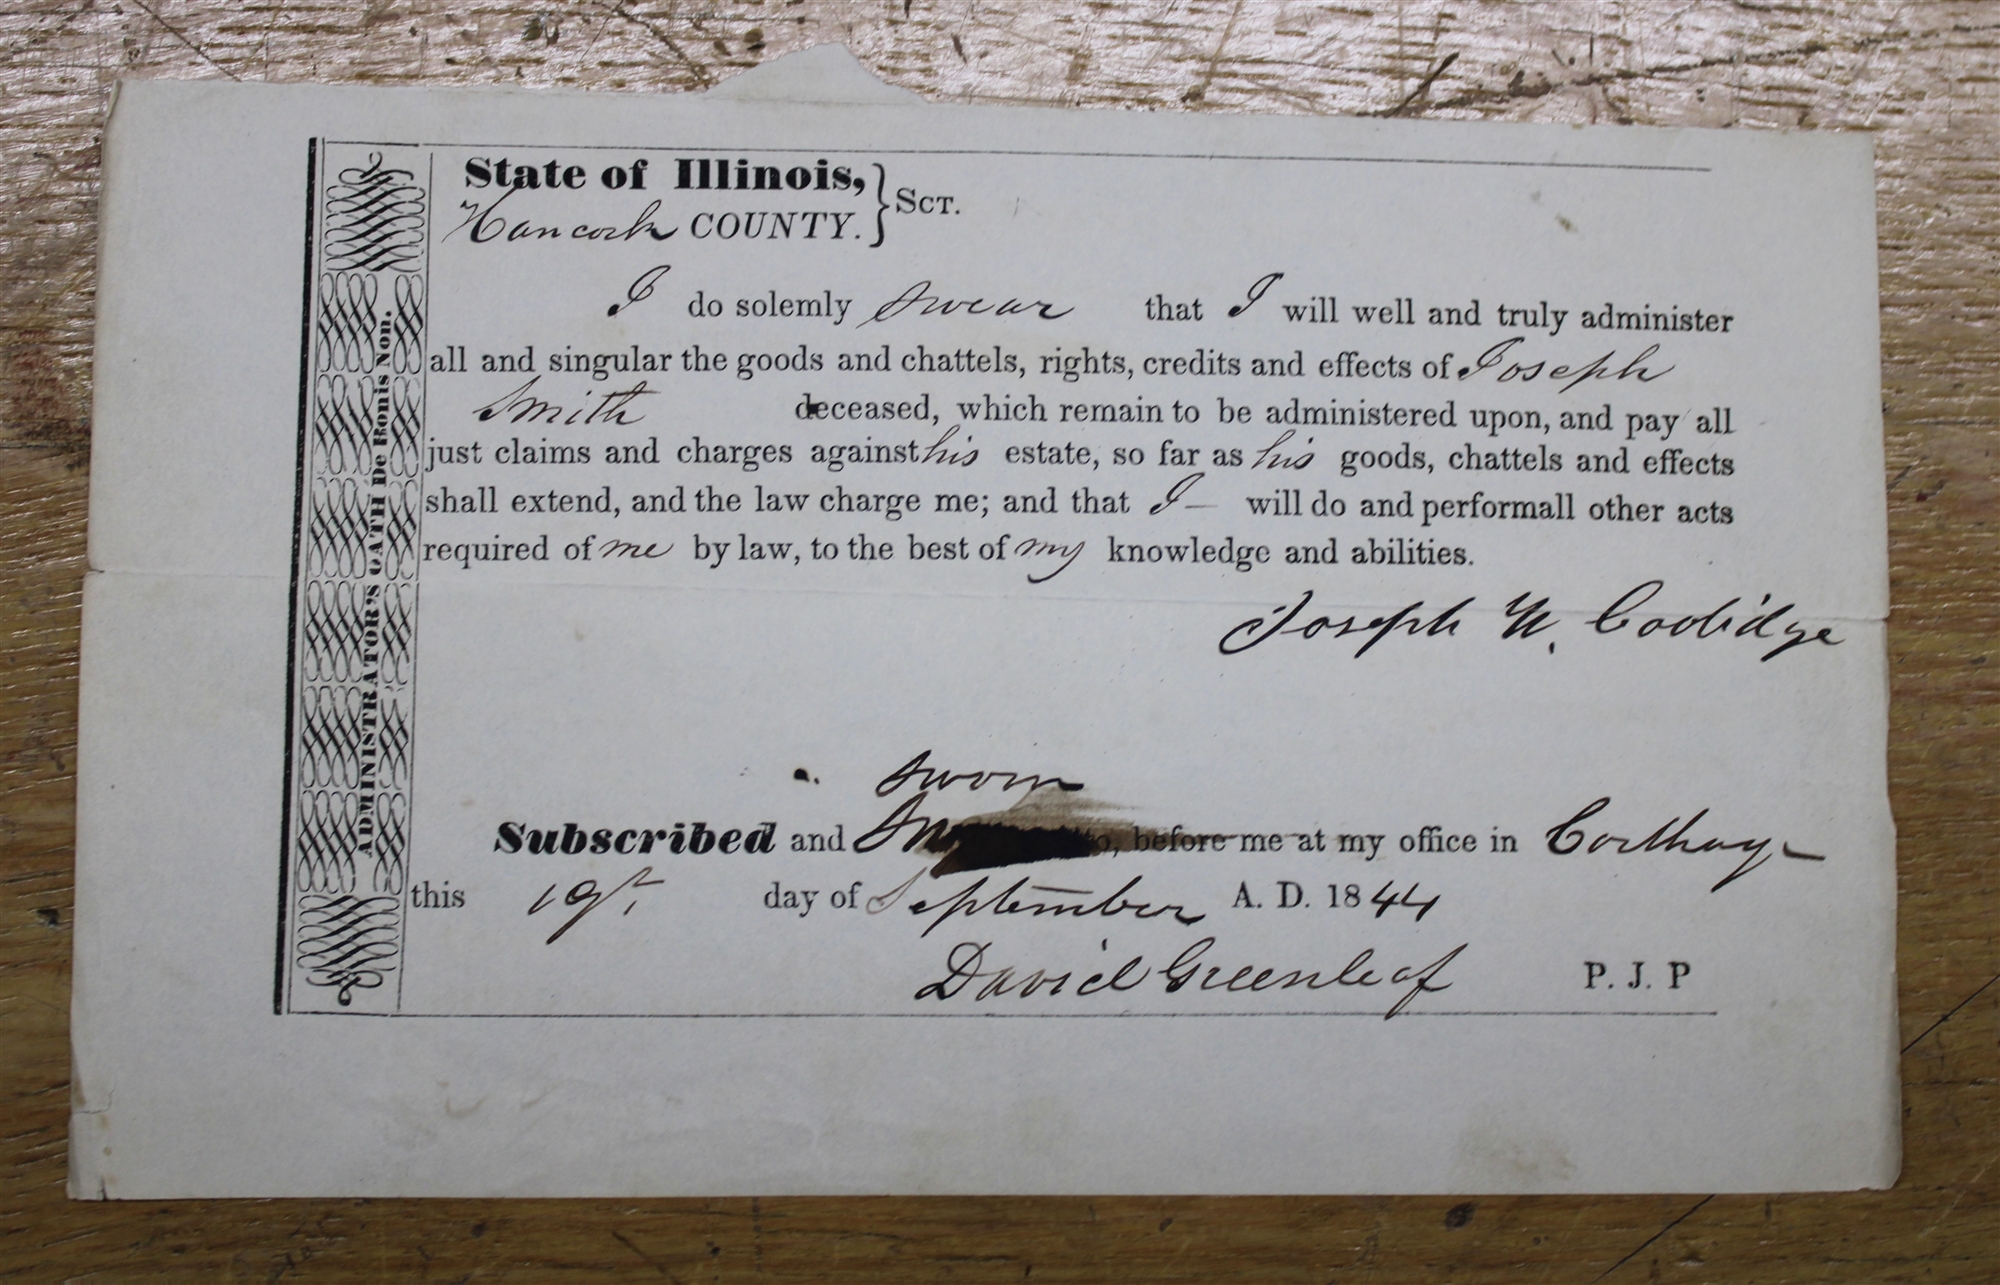 State of Illinois, } Sct.
Hancock COUNTY.
I do solemly swear that I will well and truly administer
all and singular the goods and chattels, rights, credits and effects of Joseph
Smith deceased, which remain to be administered upon, and pay all
just claims and charges against his estate, so far as his goods, chattels and effects
shall extend, and the law charge me; and that I — will do and performall other acts
required of me by law, to the best of my knowledge and abilities.
Joseph W. Coolidge
sworn
Subscribed and to, before me at my office in Carthage
this 19th day of September A. D. 1844
David Greenleaf P. J. P
ADMINISTRATOR'S OATH De Bonis Non.